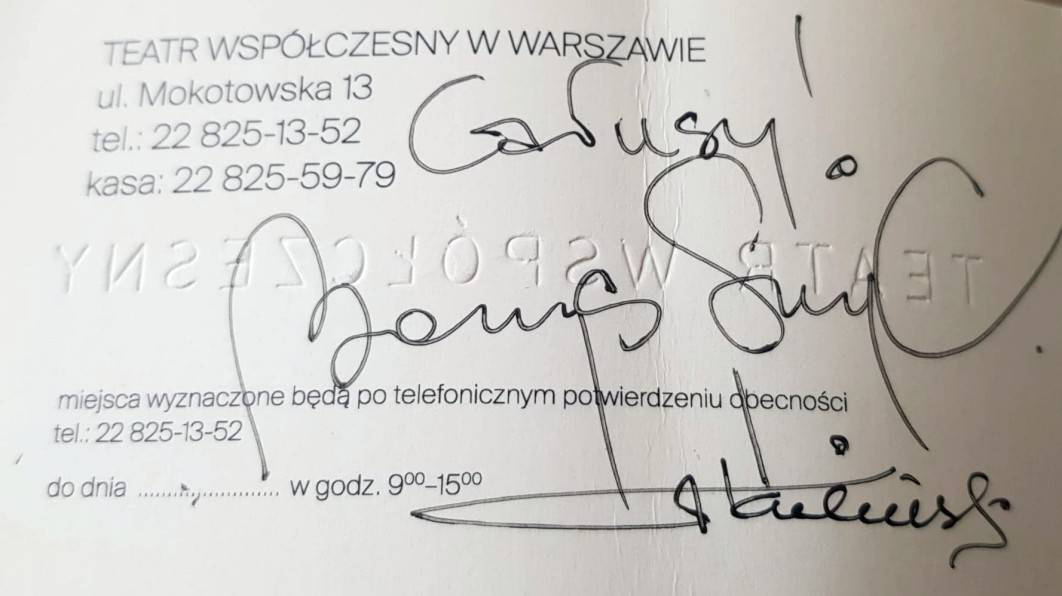 TEATR WSPÓŁCZESNY W WARSZAWIE
ul. Mokotowska 13
tel.: 22 825-13-52
kasa: 22 825-59-79
Całusy!
TEATR WSPÓŁCZESNY
miejsca wyznaczone będą po telefonicznym potwierdzeniu obecności
tel.: 22 825-13-52
do dnia ........................ w godz. 9⁰⁰–15⁰⁰